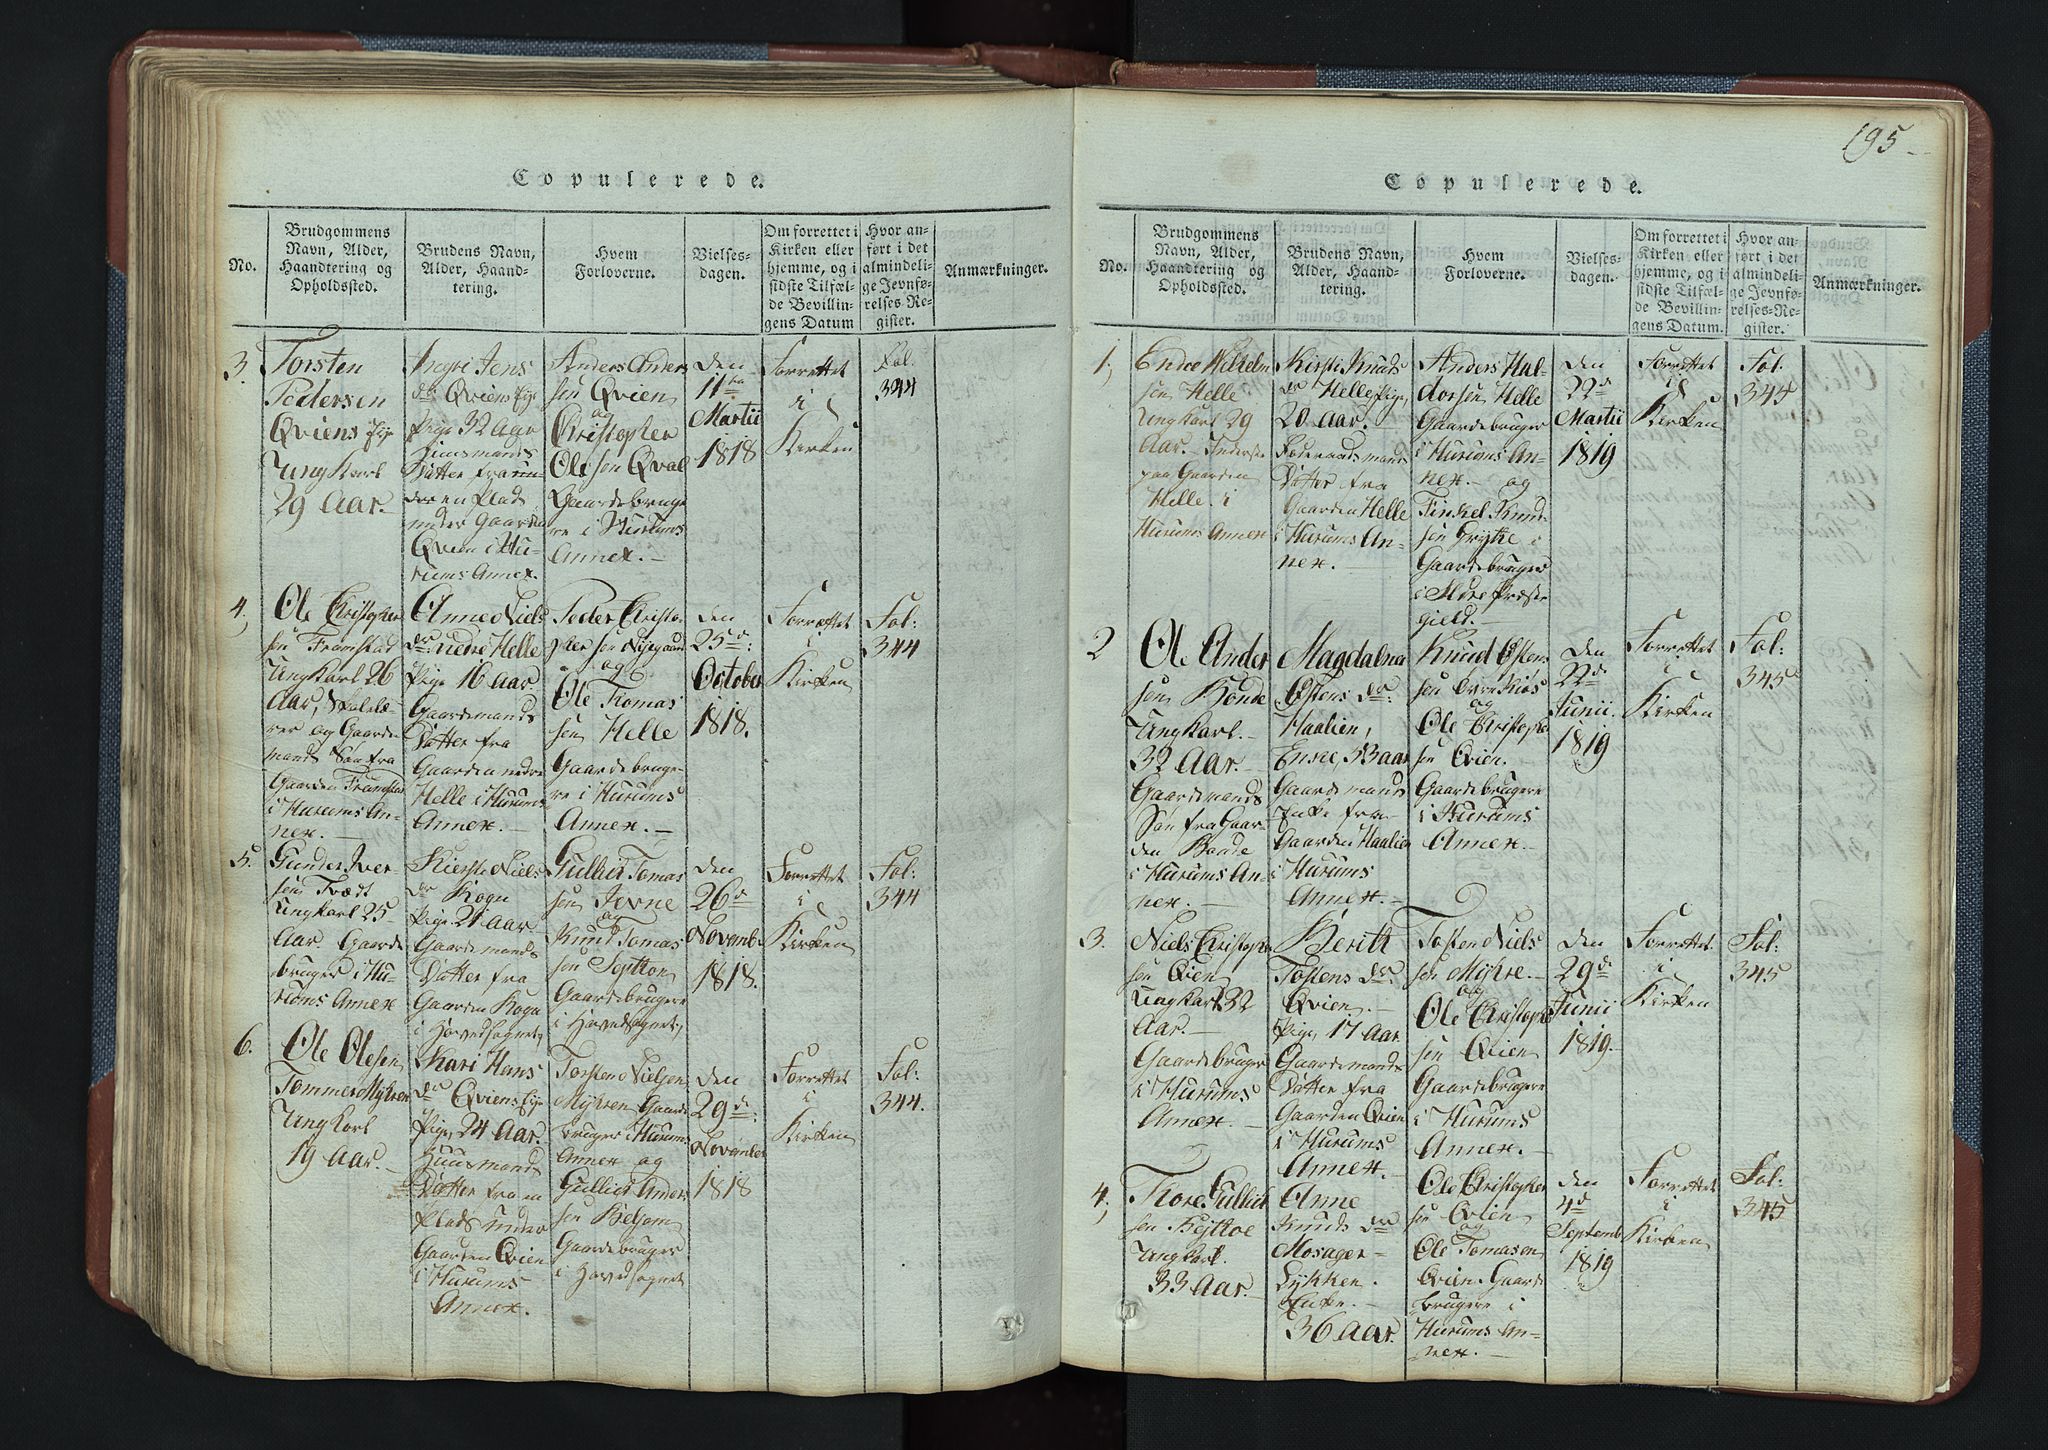 Copulerede.
No.
Brudgommens
Navn, Alder,
Haandtering og
Opholdssted.
Brudens Navn,
Alder, Haand-
tering.
Hvem
Forloverne.
Vielses-
dagen.
Om forrettet i
Kirken eller
hjemme, og i
sidste Tilfæl-
de Bevillin-
gens Datum
Hvor an-
ført i det
almindeli-
ge Jevnfø-
relses-Re-
gister.
Anmærkninger.
3.
Torsten
Pedersen
Qviens Eje
Ungkarl
29 Aar.
Ingri Jens
dr Qviens Eje
Pige 32 Aar
Huusmands
Datter fra
en Plads
under Gaarden
Qvien i Hu-
rums Annex.
Anders Anders
sen Qvien
og
Christopher
Olesen Qval
Gaardebruge
re i Hurums
Annex.
den
11te
Martii
1818
Forrettet
i
Kirken
Fol.
344
4,
Ole Christopher
sen Framstad
Ungkarl 26
Aar, Skolelæ-
rer og Gaard
mands Søn fra
Gaarden Framstad
i Hurums An-
nex.
Anne Niels
dr nedre Helle
Pige 16 Aar.
Gaardemands
Datter fra
Gaarden nedre
Helle i Hurums
Annex.
Peder Christo-
phersen Nygaard
og
Ole Tomas
sen Helle
Gaardebruge-
re i Hurums
Annex.
den
25de:
October
1818.
Forrettet
i
Kirken
Fol:
344
5.
Gunder Iver-
sen Tvedt
Ungkarl 25
Aar. Gaarde
bruger i Hu-
rums Annex
Kierste Niels
dr Rogn
Pige 21 Aar
Gaardemands
Datter fra
Gaarden Rogn
i Hovedsognet,
Gullich Tomas
sen Jevne
og
Knud Tomas
sen
Gaardebrugere
i Hovedsognet,
den
26de
Novemb.
1818.
Forrettet
i
Kirken
Fol:
344
6.
Ole Olesen
Tommer Myhren
Ungkarl
19 Aar.
Kari Hans
dr Qviens Eje
Pige, 24 Aar.
Huusmands
Datter fra en
Plads under
Gaarden Qvien
i Hurums
Annex.
Torsten Nielsen
Myhren Gaard
bruger i Hurums
Annex og
Gullich Anders
sen
Gaardebruger
i Hovedsognet
den
29de:
November
1818
Forrettet
i
Kirken
Fol:
344.
195
Copulerede.
No.
Brudgommens
Navn, Alder,
Haandtering og
Opholdssted.
Brudens Navn,
Alder, Haand-
tering.
Hvem
Forloverne.
Vielses-
dagen.
Om forrettet i
Kirken eller
hjemme, og i
sidste Tilfæl-
de Bevillin-
gens Datum.
Hvor an-
ført i det
almindeli-
ge Jevnfø-
relses-Re-
gister.
Anmærkninger.
1,
Endre Wilhelm
sen Helle
Ungkarl 29
Aar. Inderste
paa Gaarden
Helle i
Hurums Annex
Kirsti Knuds
dr Helle Pige,
20 Aar.
Føderaadsmands
Datter fra
Gaarden Helle
i Hurums An-
nex.
Anders Hal-
dorsen Helle
Gaardebruger
i Hurums An-
nex. og
Tinkel Knud-
sen Gryte i
Gaardebruger
i Slidre Præste
gield.
den
22de
Martii
1819
Forrettet
i
Kirken
Fol.
345
2
Ole Ander
sen Bonde
Ungkarl.
32 Aar.
Gaardemands
Søn fra Gaar-
den Bonde
i Hurums An-
nex.
Magdalena
Østens dr:
Haalien,
Enke, 33 aar
Gaardemands
Enke fra
Gaarden Haalien
i Hurums
Annex.
Knud Østens
sen
og
Ole Christoph
sen Qvien.
Gaardebrugere
i Hurums
Annex.
den
22de
Junii.
1819
Forrettet
i
Kirken
Fol:
345
3.
Niels Christoph
sen Qvien
Ungkarl 32
Aar.
Gaardebruger
i Hurums
Annex.
Berith
Tostens dr
Qvien.
Pige, 17 Aar
Gaardemands
Datter fra
Gaarden Qvien
i Hurums
Annex.
Tosten Niels
sen Myhre.
og
Ole Christoph
sen Qvien
Gaardebrugere
i Hurums
Annex.
den
29de
Junii
1819.
Forrettet
i
Kirken
Fol:
345
4,
Thore Gullich
sen
Ungkarl.
33 Aar.
Anne
Knuds dr
Mosager-
Lykken.
Enke.
36 Aar.
Ole Christopher
sen Qvien
og
Ole Tomasen
Qvien. Gaard
brugere i
Hurums An-
nex.
den
4de
Septemb
1819
Forrettet
i
Kirken
Fol:
345